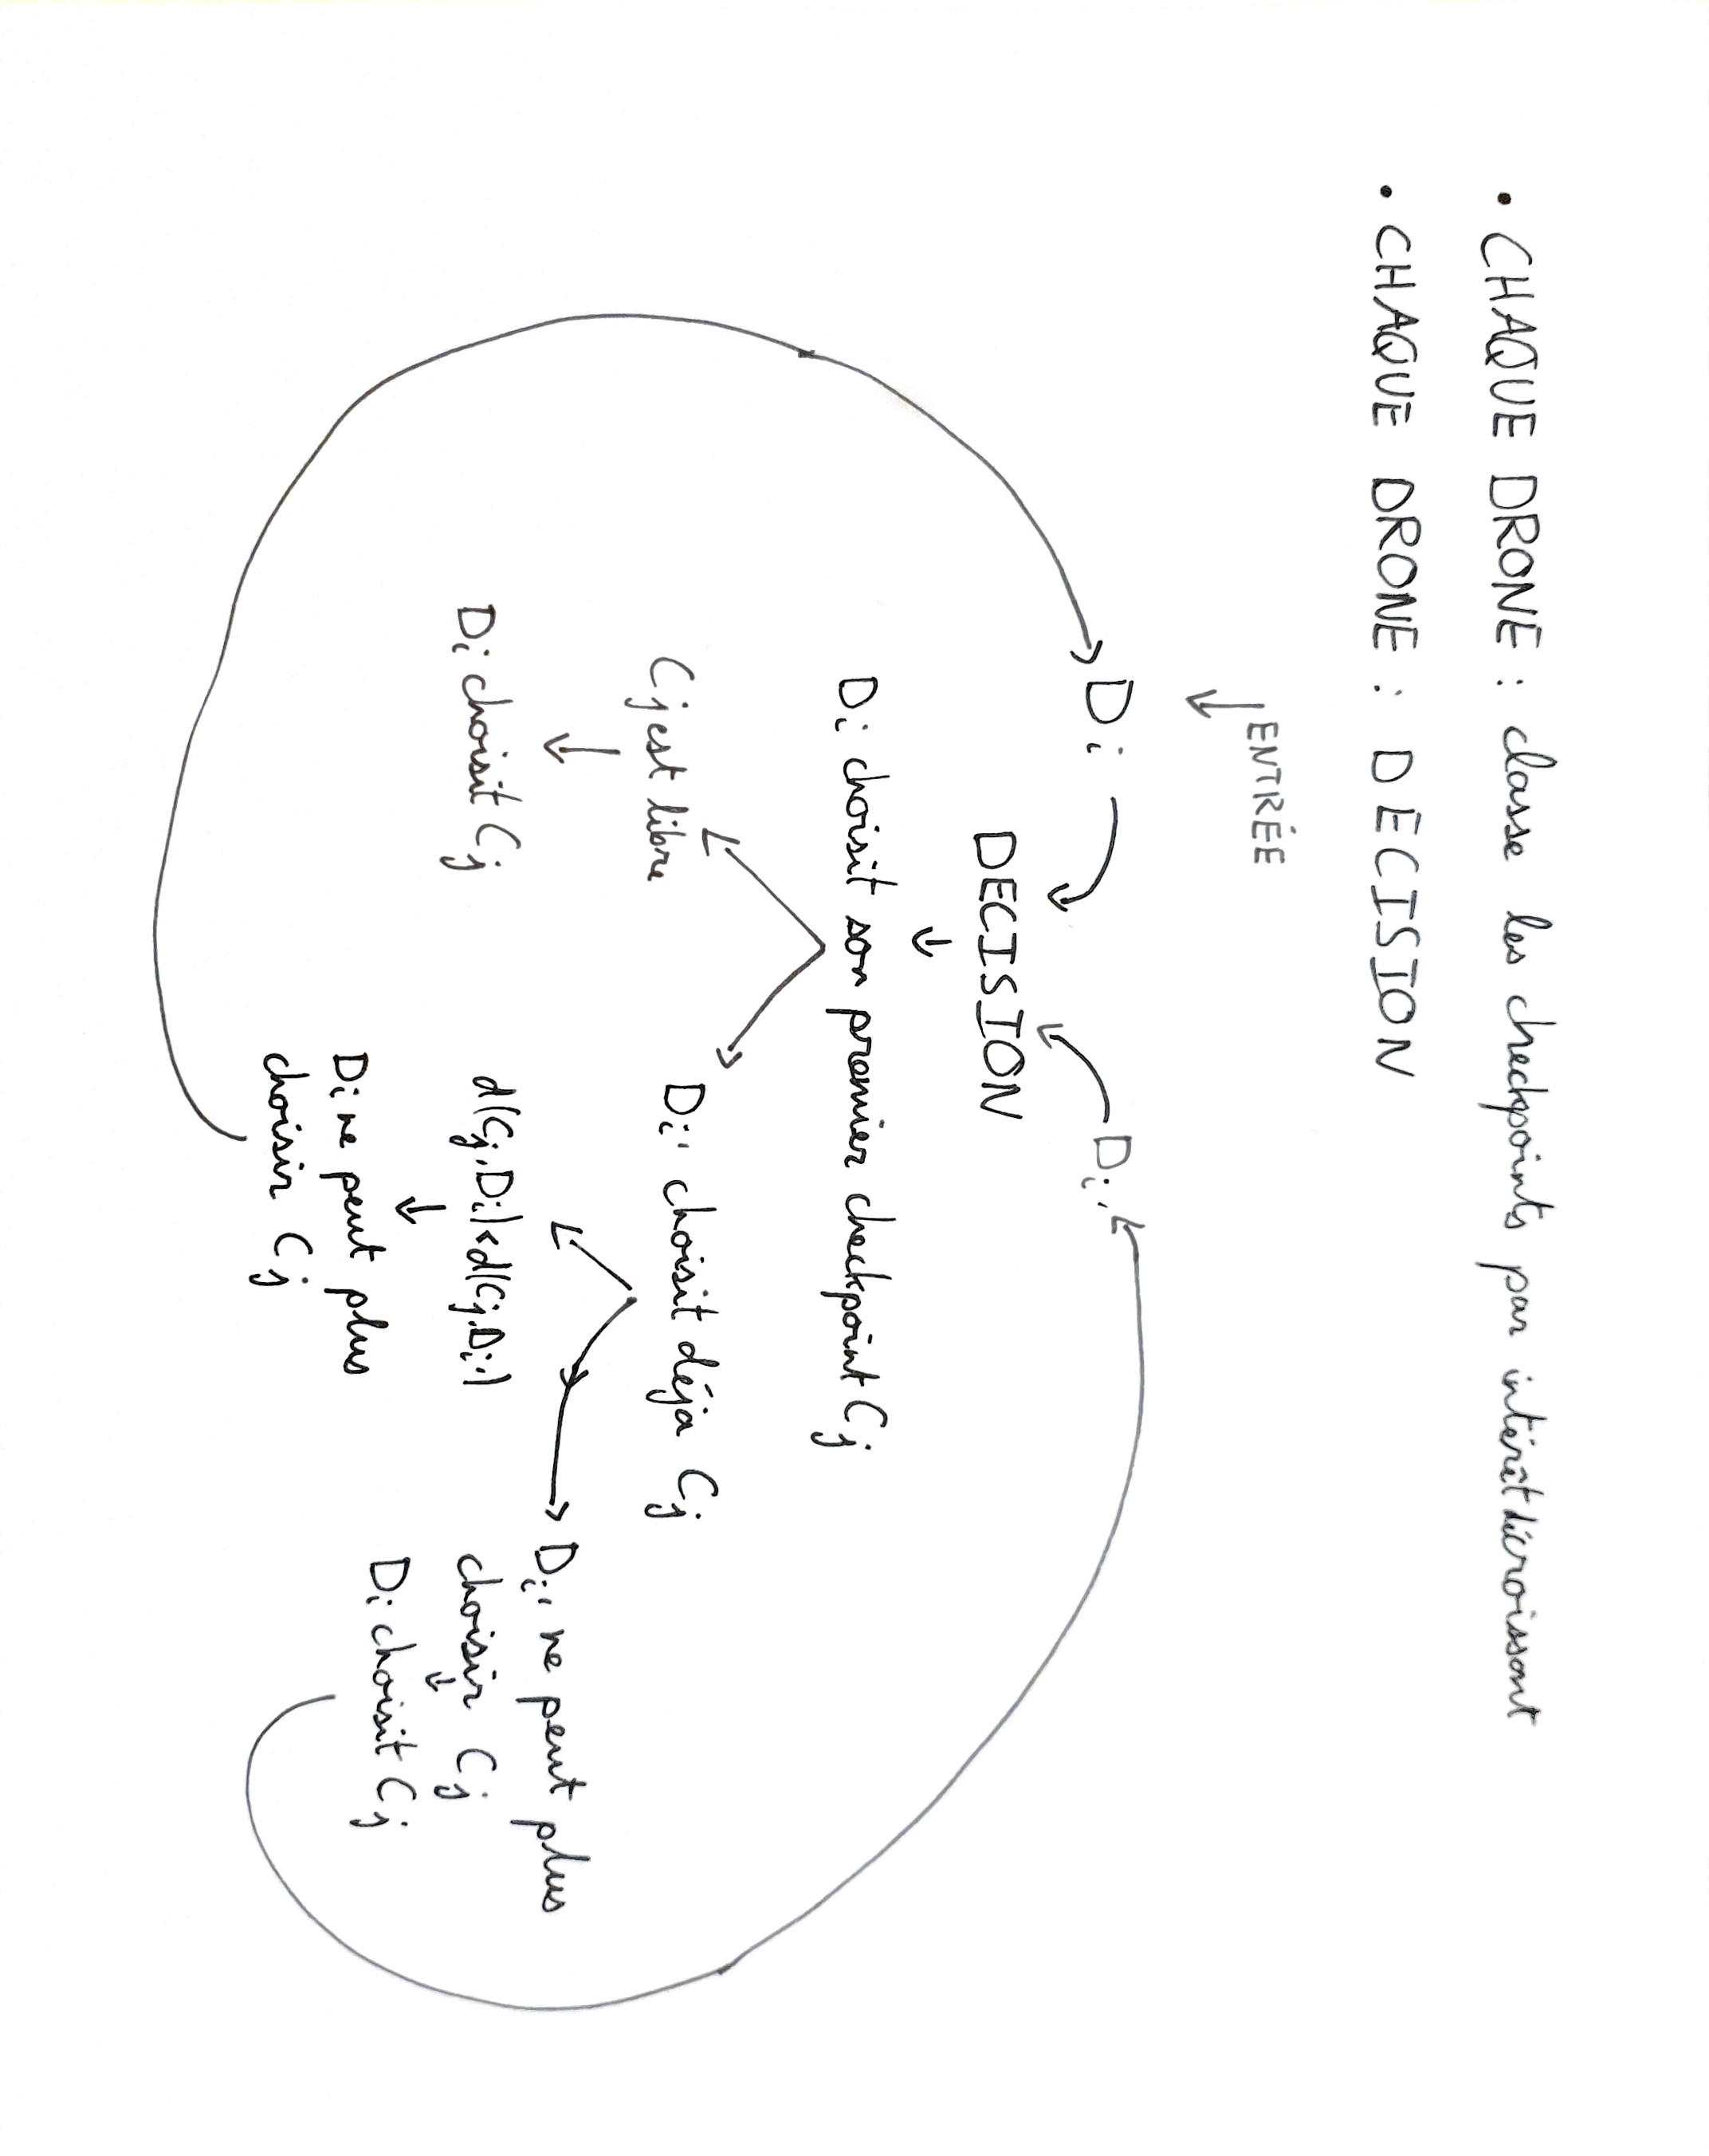 • CHAQUE DRONE : classe les checkpoints par intérêt décroissant
• CHAQUE DRONE : DECISION
ENTRÉE
Di
Di'
DECISION
Di choisit son premier checkpoint Cj
Cj est libre
Di' choisit déja Cj
Di choisit Cj
d(Cj,Di)<d(Cj,Di')
Di' ne peut plus
choisir Cj
Di choisit Cj
Di ne peut plus
choisir Cj